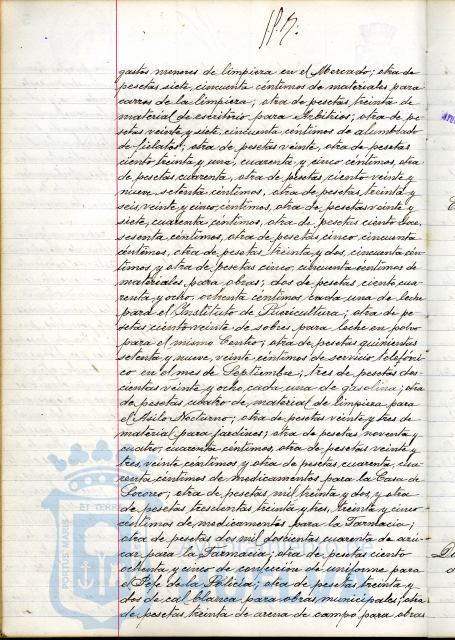 gastos menores de limpieza en el Mercado; otra de
pesetas siete, cincuenta céntimos de materiales para
carros de la limpieza; otra de pesetas treinta de
material de escritorio para Arbitrios; otra de pe-
setas veinte y siete, cincuenta céntimos de alumbrado
de fielatos; otra de pesetas veinte, otra de pesetas
ciento treinta y una, cuarenta y cinco céntimos, otra
de pesetas cuarenta, otra de pesetas ciento veinte y
nueve, setenta céntimos, otra de pesetas treinta y
seis, veinte y cinco céntimos, otra de pesetas veinte y
siete, cuarenta céntimos, otra de pesetas ciento doce,
sesenta céntimos, otra de pesetas cinco, cincuenta
céntimos, otra de pesetas treinta y dos, cincuenta cén-
timos y otra de pesetas cinco, cincuenta céntimos de
materiales para obras; dos de pesetas ciento cua-
renta y ocho, ochenta céntimos cada una de leche
para el Instituto de Puericultura; otra de pe-
setas ciento veinte de sobres para leche en polvo
para el mismo Centro; otra de pesetas quinientas
setenta y nueve, veinte céntimos de servicio telefóni-
co en el mes de Septiembre; tres de pesetas dos-
cientas veinte y ocho, cada una de gasolina; otra
de pesetas cuatro de material de limpieza para
el Asilo Nocturno; otra de pesetas veinte y tres de
material para jardines; otra de pesetas noventa y
cuatro, cuarenta céntimos, otra de pesetas veinte y
tres, veinte céntimos y otra de pesetas cuarenta, cua-
renta céntimos de medicamentos para la Casa de
Socorro; otra de pesetas mil treinta y dos y otra
de pesetas trescientas treinta y tres, treinta y cinco
céntimos de medicamentos para la Farmacia;
otra de pesetas dos mil doscientas cuarenta de azú-
car para la Farmacia; otra de pesetas ciento
ochenta y cinco de confección de uniforme para
el Jefe de la Policía; otra de pesetas treinta y
dos de cal blanca para obras municipales; otra
de pesetas treinta de arena de campo para obras
PORTUS MARIS
ET TERR